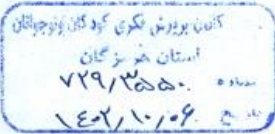 کانون پرورش فکری کودکان و نوجوانان
استان هرمزگان
شماره ۷۲۹/۳۵۵۰
تاریخ ۱۴۰۲/۱۰/۰۶